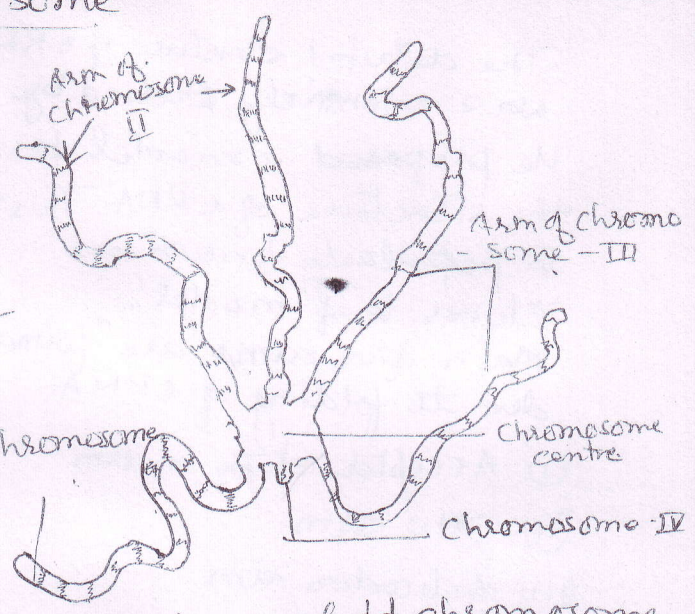 some
Arm of
Chromosome
II
Arm of Chromo
some - III
Chromosome
centre
Chromosome
Chromosome - IV
chromosome